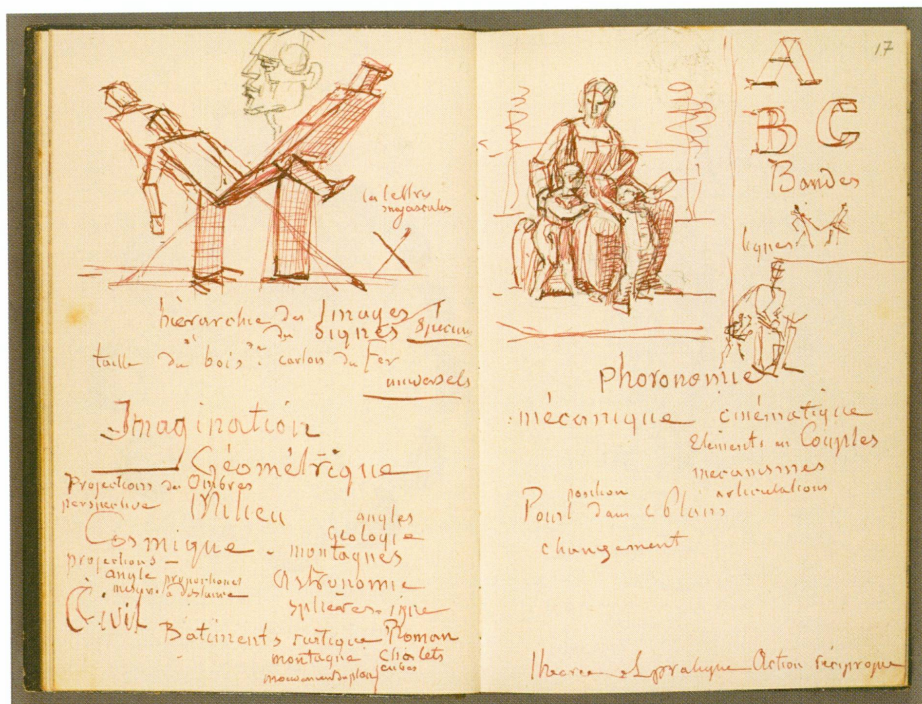 la lettre
majuscules
hiérarchie des Images
du Signes
taille du bois. carton du Fer
universels
Imagination
Géométrique
Projections des Ombres
perspective Milieu
angles
Géologie
Cosmique - montagnes
projections -
angle proportions
mesure à distance
Astronomie
sphères
Civil
Bâtiments rustique Roman
montagne Chalets
mouvement plan cubes
17
A
B C
Bandes
lignes
Phoronomie
mécanique cinématique
Eléments en Couples
mécanismes
position articulations
Point dans
changement
Théorie et pratique Action réciproque